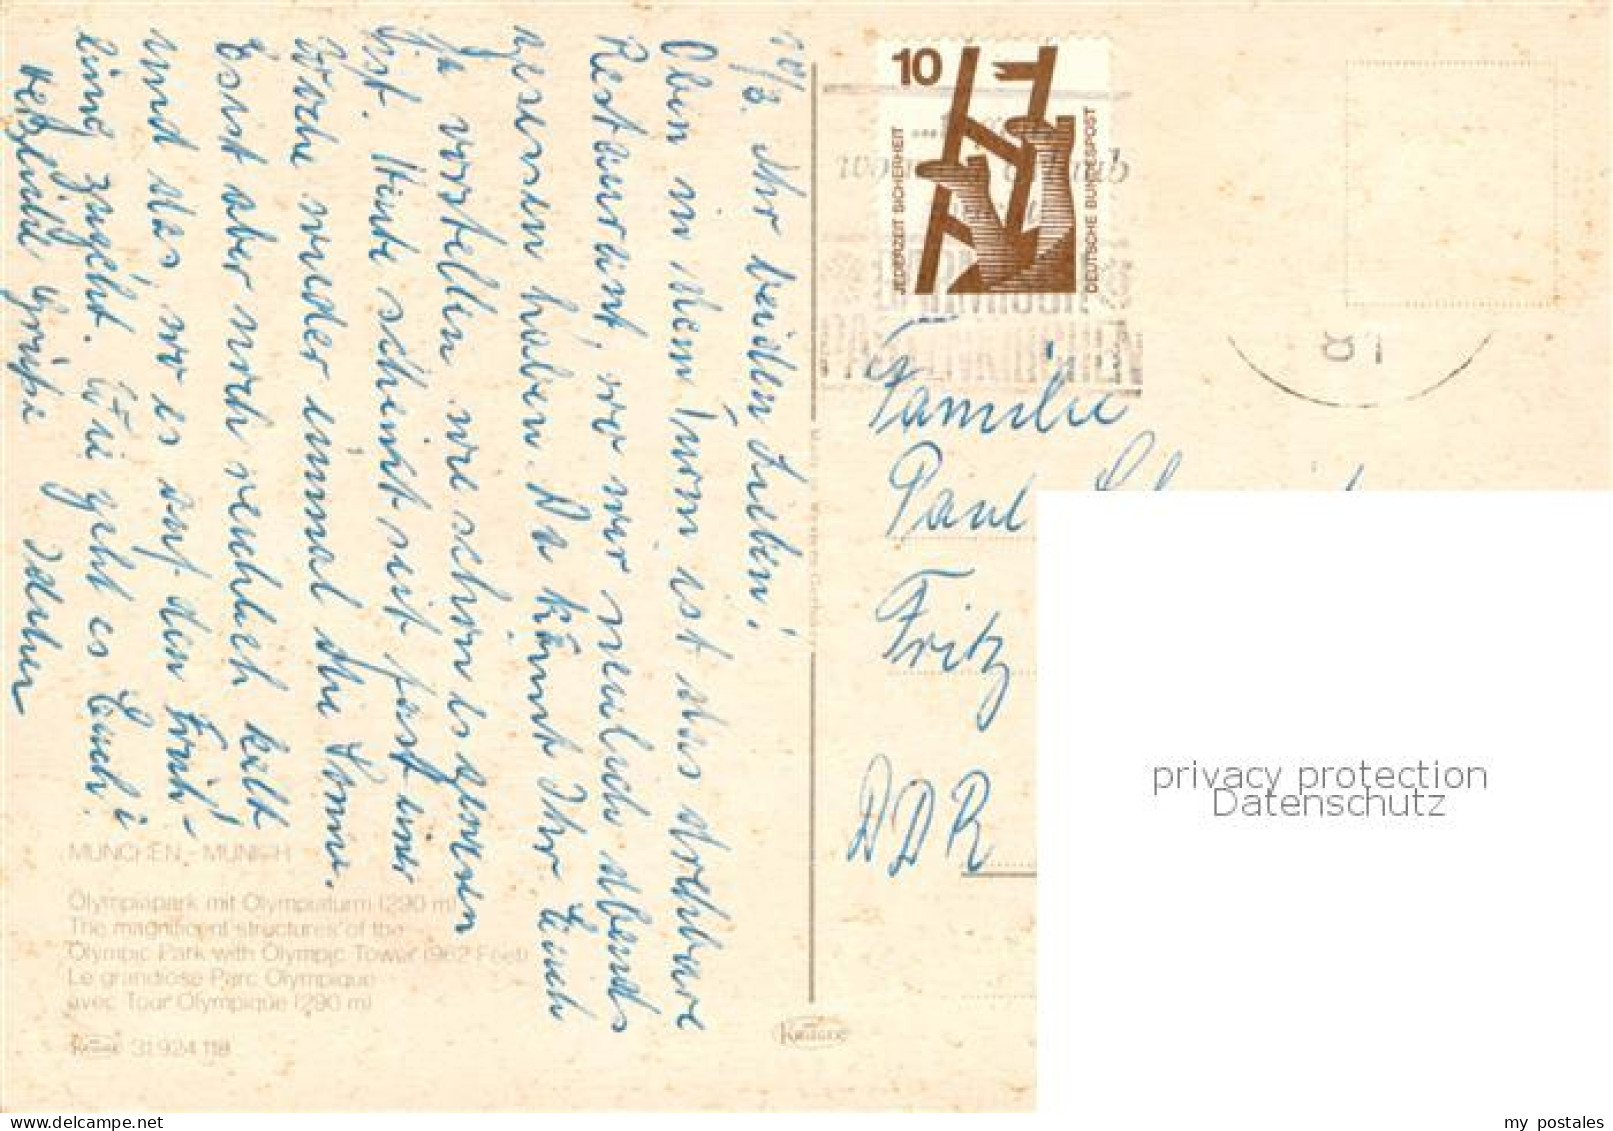 18/3. Ihr beiden Lieben!
Oben in dem Turm ist das drehbare
Restaurant, wo wir neulich abends
gesessen haben. Da könnt Ihr Euch
ja vorstellen wie schön es gewesen
ist. Heute scheint seit fast einer
Woche wieder einmal die Sonne.
Es ist aber noch reichlich kalt
und das, wo es auf den Früh-
ling zugeht. Wie geht es Euch?
Herzliche Grüße
MÜNCHEN - MUNICH
Olympiapark mit Olympiaturm (290 m)
The magnificent structures of the
Olympic Park with Olympic Tower (962 Feet)
Le grandiose Parc Olympique
avec Tour Olympique (290 m)
Krüger 31.924 118
Krüger
10
JEDERZEIT SICHERHEIT
DEUTSCHE BUNDESPOST
Familie
Paul
Fritz
DDR
privacy protection
Datenschutz
my_postales
www.delcampe.net